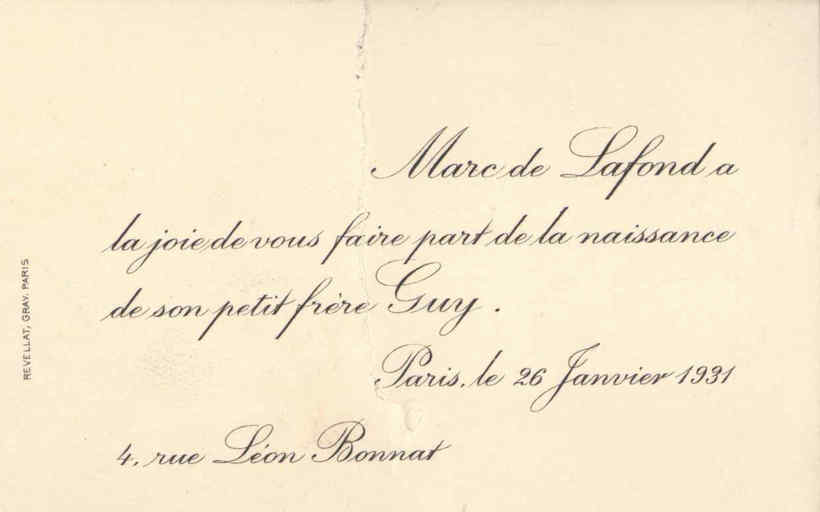 Marc de Lafond a
la joie de vous faire part de la naissance
de son petit frère Guy.
Paris, le 26 Janvier 1931
4, rue Léon Bonnat
REVELLAT, GRAV. PARIS